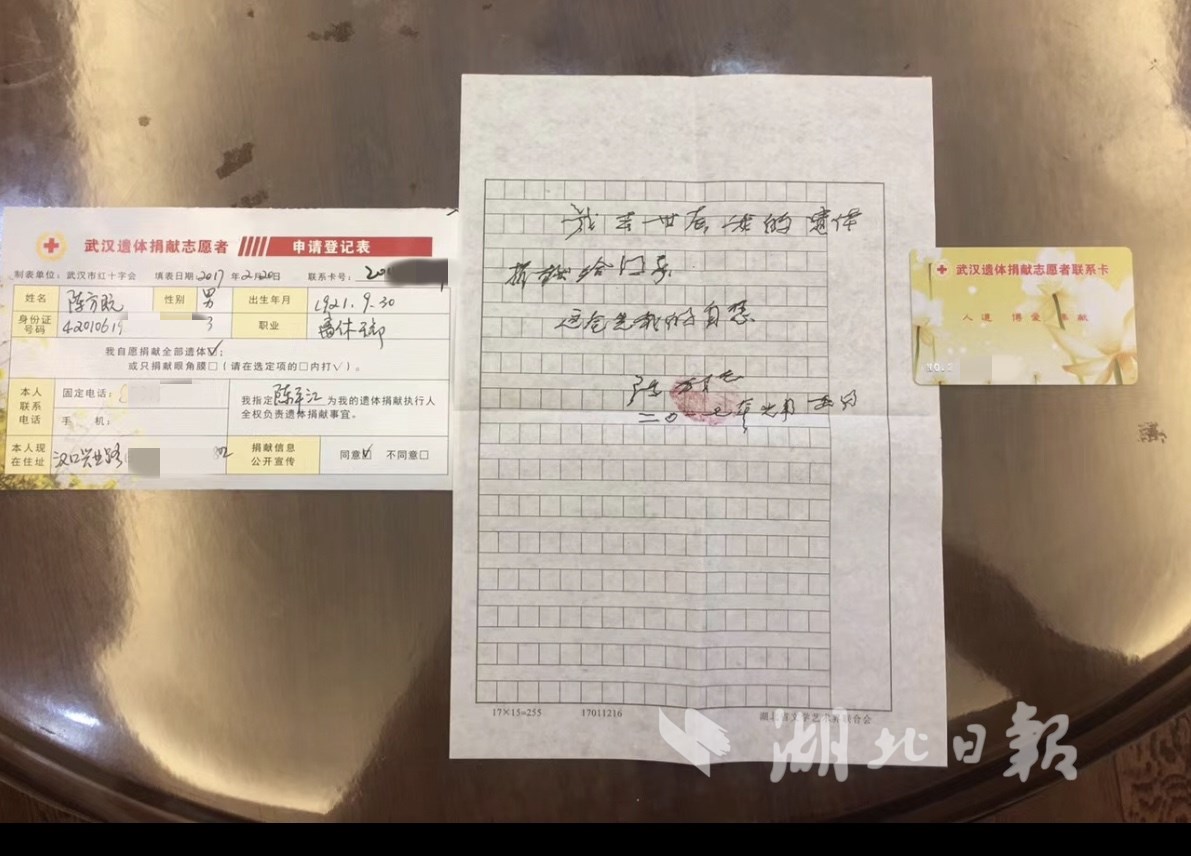 武汉遗体捐献志愿者 申请登记表
制表单位：武汉市红十字会 填表日期2017年2月20日 联系卡号：
姓名 陈方既 性别 男 出生年月 1921.9.30
身份证号码 4201061 3 职业 离休干部
我自愿捐献全部遗体☑；
或只捐献眼角膜□（请在选定项的□内打√）。
本人联系电话 固定电话：
手 机：
我指定陈平江为我的遗体捐献执行人
全权负责遗体捐献事宜。
本人现在住址 汉口兴业路
捐献信息公开宣传 同意☑ 不同意□
我去世后 我的遗体
捐献给国家
这完全是我的自愿
陈方既
二〇一七年元月
17×15=255 17011216 湖北省文学艺术界联合会
武汉遗体捐献志愿者联系卡
人道 博爱 奉献
湖北日報